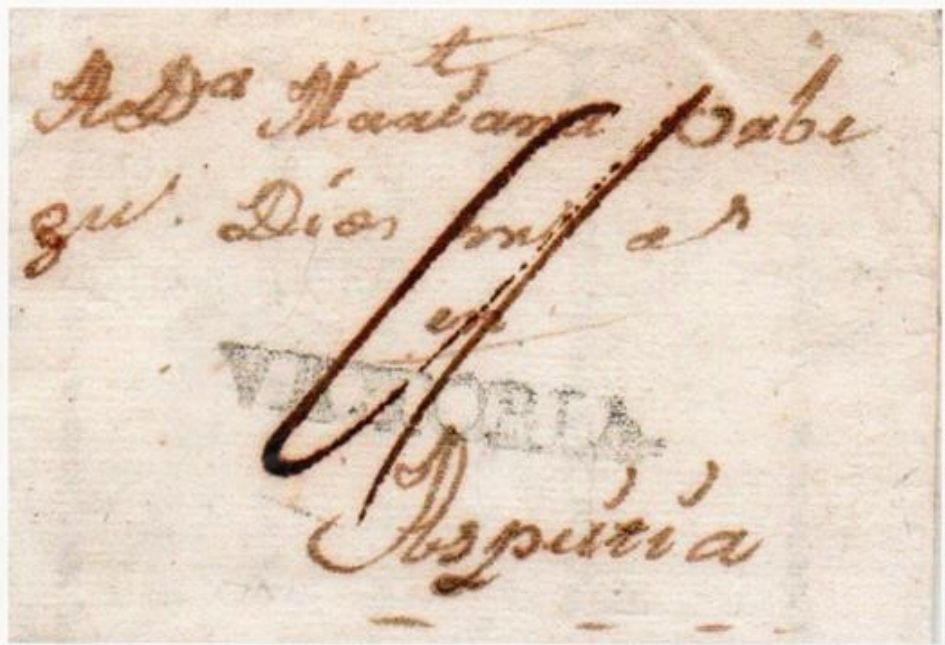 A Dª Mariana Orbe
que Dios mˢ aˢ
en
VITORIA
Aspúitia